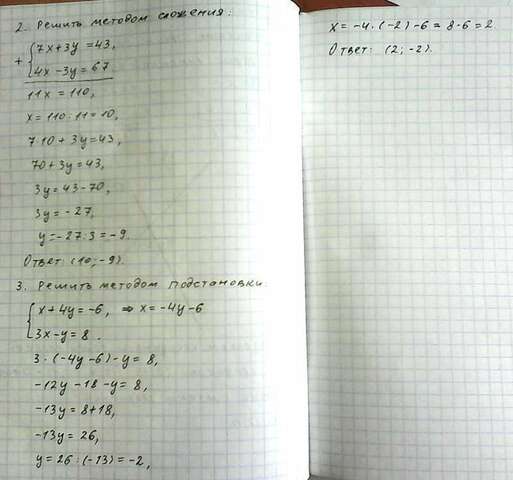 2. Решить методом сложения:
+ { 7x+3y=43,
4x-3y=67.
11x = 110,
x = 110:11=10,
7·10 + 3y=43,
70+3y=43,
3y=43-70,
3y=-27,
y=-27:3=-9.
Ответ: (10;-9).
3. Решить методом подстановки.
{ x+4y=-6, ⇒ x=-4y-6
3x-y=8.
3·(-4y-6)-y=8,
-12y-18-y=8,
-13y=8+18,
-13y=26,
y=26:(-13)=-2,
x=-4·(-2)-6=8-6=2.
Ответ: (2;-2).